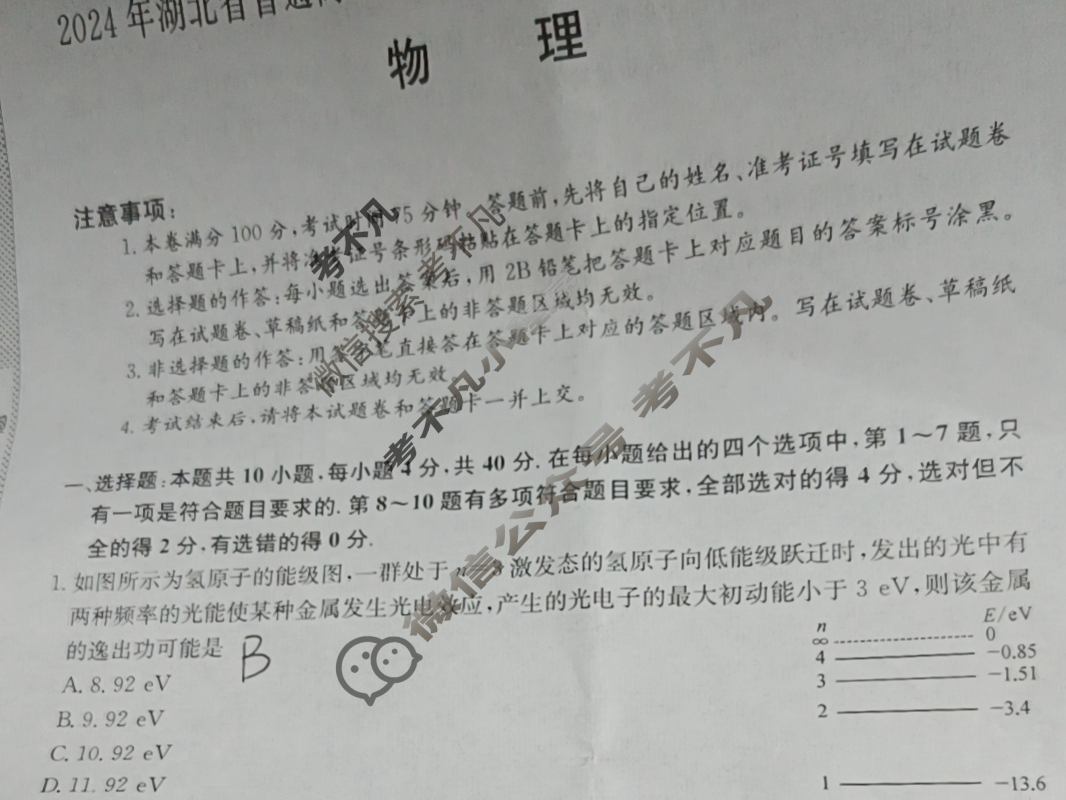 2024年湖北省普通
物 理
注意事项:
1.本卷满分100分,考试时间75分钟。答题前,先将自己的姓名、准考证号填写在试题卷
和答题卡上,并将准考证号条形码粘贴在答题卡上的指定位置。
2.选择题的作答:每小题选出答案后,用2B铅笔把答题卡上对应题目的答案标号涂黑。
写在试题卷、草稿纸和答题卡上的非答题区域均无效。
3.非选择题的作答:用 笔直接答在答题卡上对应的答题区域内。写在试题卷、草稿纸
和答题卡上的非答题区域均无效
4.考试结束后,请将本试题卷和答题卡一并上交。
一、选择题:本题共10小题,每小题4分,共40分.在每小题给出的四个选项中,第1~7题,只
有一项是符合题目要求的.第8~10题有多项符合题目要求,全部选对的得4分,选对但不
全的得2分,有选错的得0分.
1.如图所示为氢原子的能级图,一群处于 激发态的氢原子向低能级跃迁时,发出的光中有
两种频率的光能使某种金属发生光电效应,产生的光电子的最大初动能小于3 eV,则该金属
的逸出功可能是 B
A. 8.92 eV
B. 9.92 eV
C. 10.92 eV
D. 11.92 eV
n E/eV
∞ 0
4 -0.85
3 -1.51
2 -3.4
1 -13.6
考不凡
微信搜索考不凡
考不凡小
微信公众号 考不凡